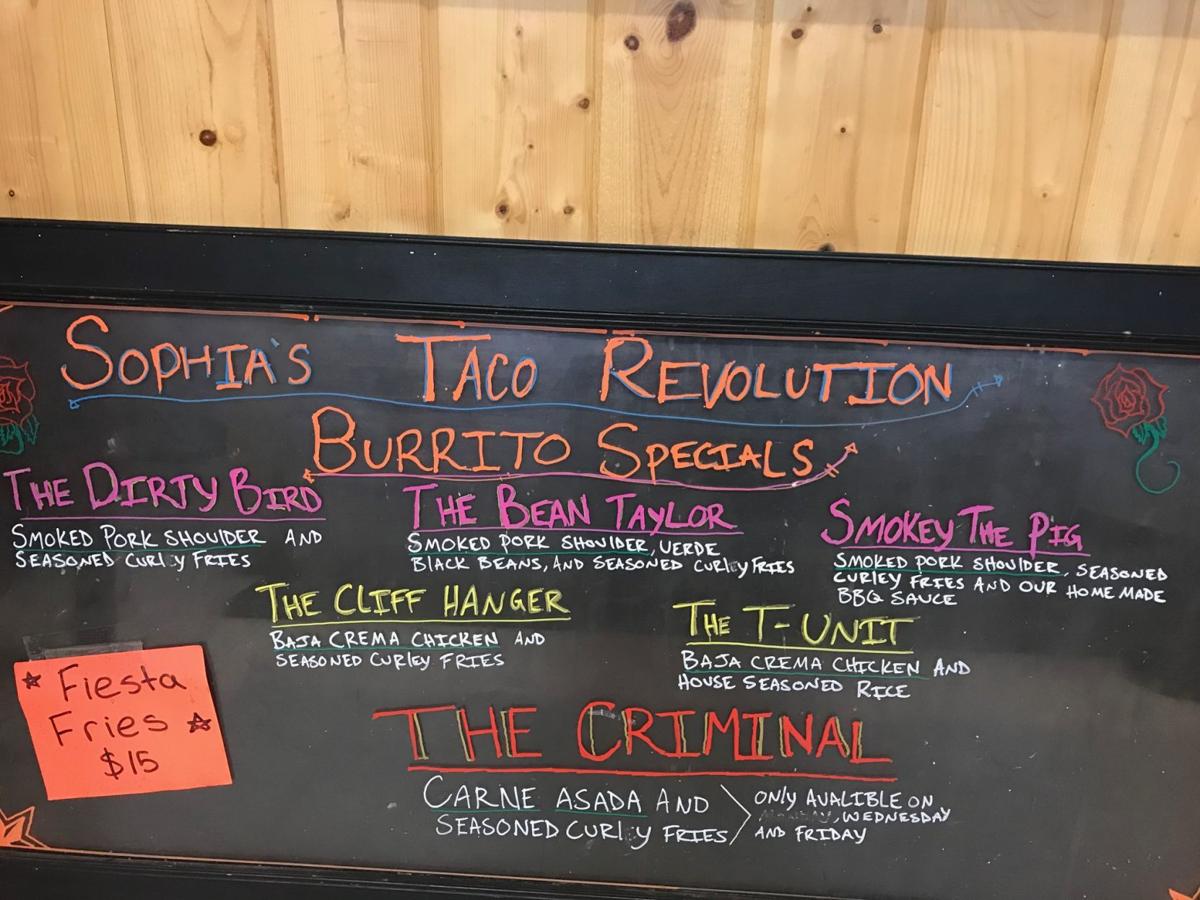 SOPHIA'S TACO REVOLUTION
BURRITO SPECIALS
THE DIRTY BIRD
SMOKED PORK SHOULDER AND
SEASONED CURLY FRIES
THE BEAN TAYLOR
SMOKED PORK SHOULDER, VERDE
BLACK BEANS, AND SEASONED CURLEY FRIES
SMOKEY THE PIG
SMOKED PORK SHOULDER, SEASONED
CURLEY FRIES AND OUR HOME MADE
BBQ SAUCE
THE CLIFF HANGER
BAJA CREMA CHICKEN AND
SEASONED CURLEY FRIES
THE T-UNIT
BAJA CREMA CHICKEN AND
HOUSE SEASONED RICE
Fiesta
Fries
$15
THE CRIMINAL
CARNE ASADA AND
SEASONED CURLY FRIES
ONLY AVALIBLE ON
, WEDNESDAY
AND FRIDAY